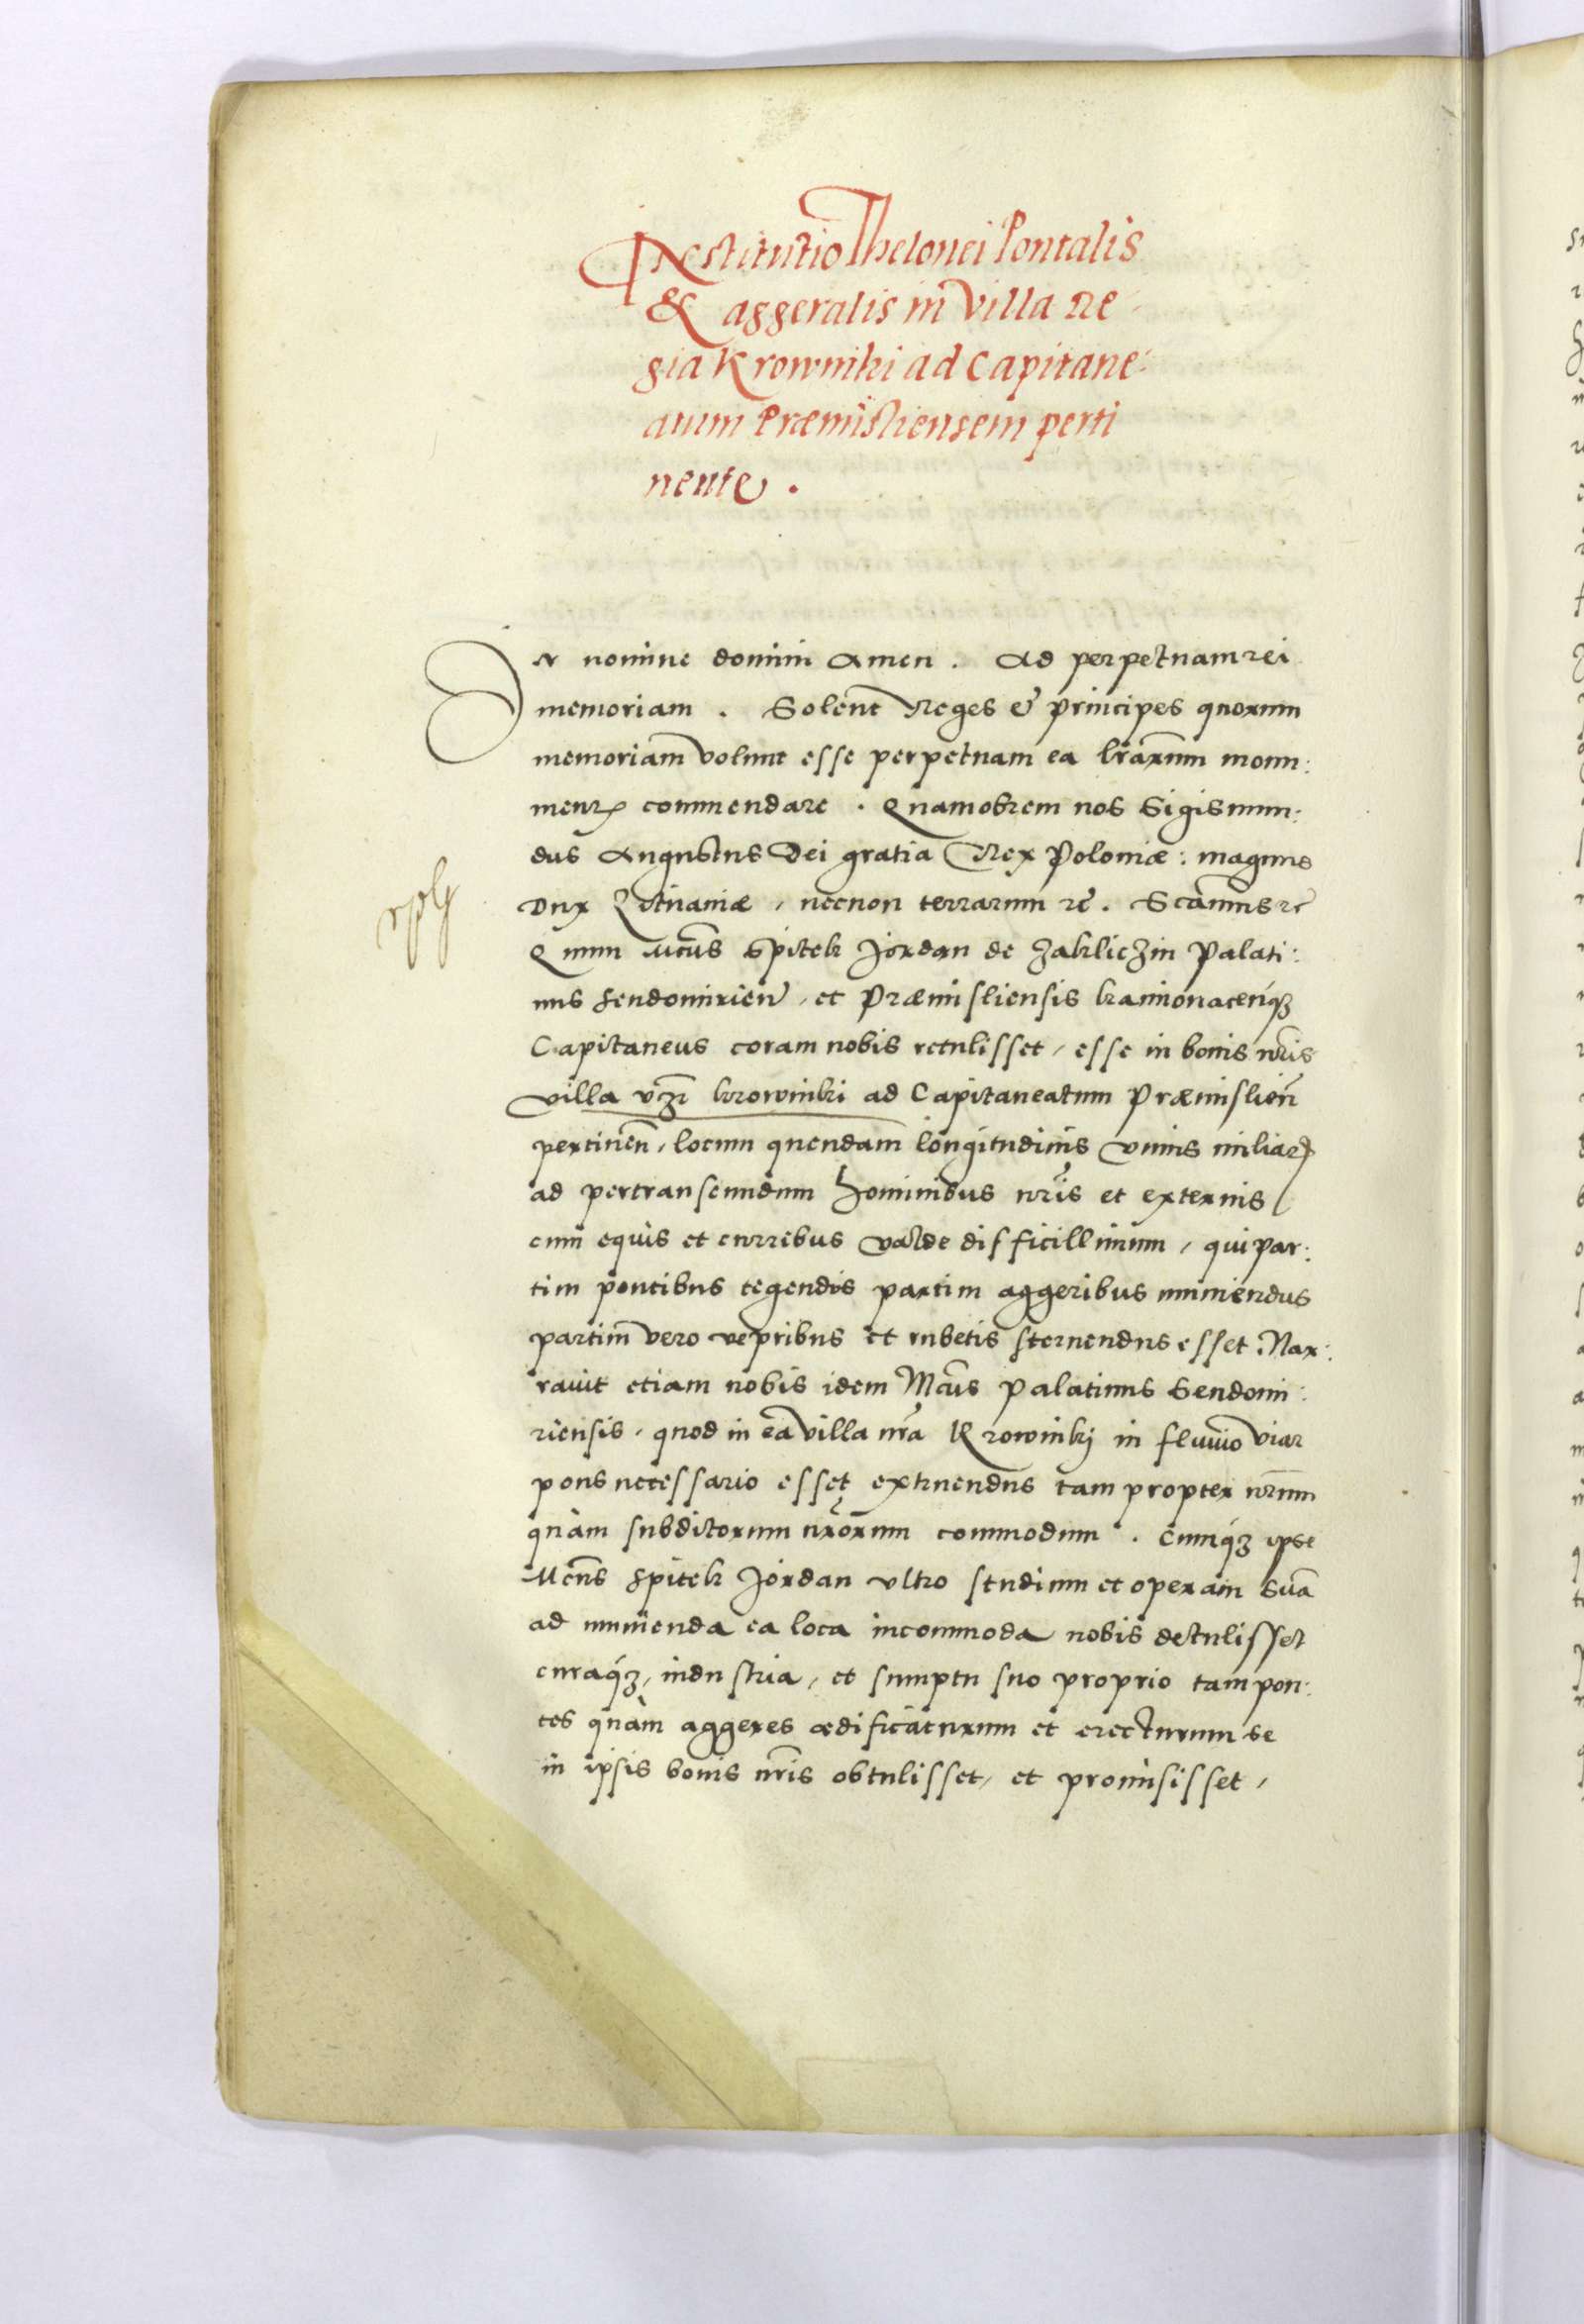 Restitutio Thelonei Pontalis
& aggeralis in Villa Re
gia Krowniki ad Capitane:
atum Præmisliensem perti
nente.
In nomine domini Amen. Ad perpetuam rei
memoriam. Solent Reges et principes quorum
memoriam volunt esse perpetuam ea lrãrum monu:
mentꝭ commendare. Quamobrem nos Sigismun:
dus Augustus Dei gratia Rex Poloniæ: magnus
Dux Lituaniæ, necnon terrarum etc̃.
Quum Mcũs Spitek Jordan de Zakliczin Palati:
nus Sendomirien̄, et Præmisliensis kamionacen̄qꝫ
Capitaneus coram nobis retulisset, esse in bonis nr̃is
villa vꝫ krowniki ad Capitaneatum Præmislien̄
pertinen̄, locum quendam longitudinis vnius miliarꝭ
ad pertranseundum hominibus nr̃is et externis
cum equis et curribus valde difficillimum, qui par:
tim pontibus tegendis partim aggeribus muniendus
partim vero vepribus et rubetis sternendus esset. Nar:
rauit etiam nobis idem Mcũs Palatinus Sendomi:
riensis, quod in ea villa nr̃a Krowniki in fluuio viar
pons necessario esset extruendus tam propter nr̃um
quàm subditorum nr̃orum commodum. Cumqꝫ ipse
Mcũs Spitek Jordan vltro studium et operam suã
ad munienda ea loca incommoda nobis detulisset
curaqꝫ, industria, et sumptu suo proprio tam pon:
tes quàm aggeres ædificaturum et erecturum se
in ipsis bonis nr̃is obtulisset, et promisisset,